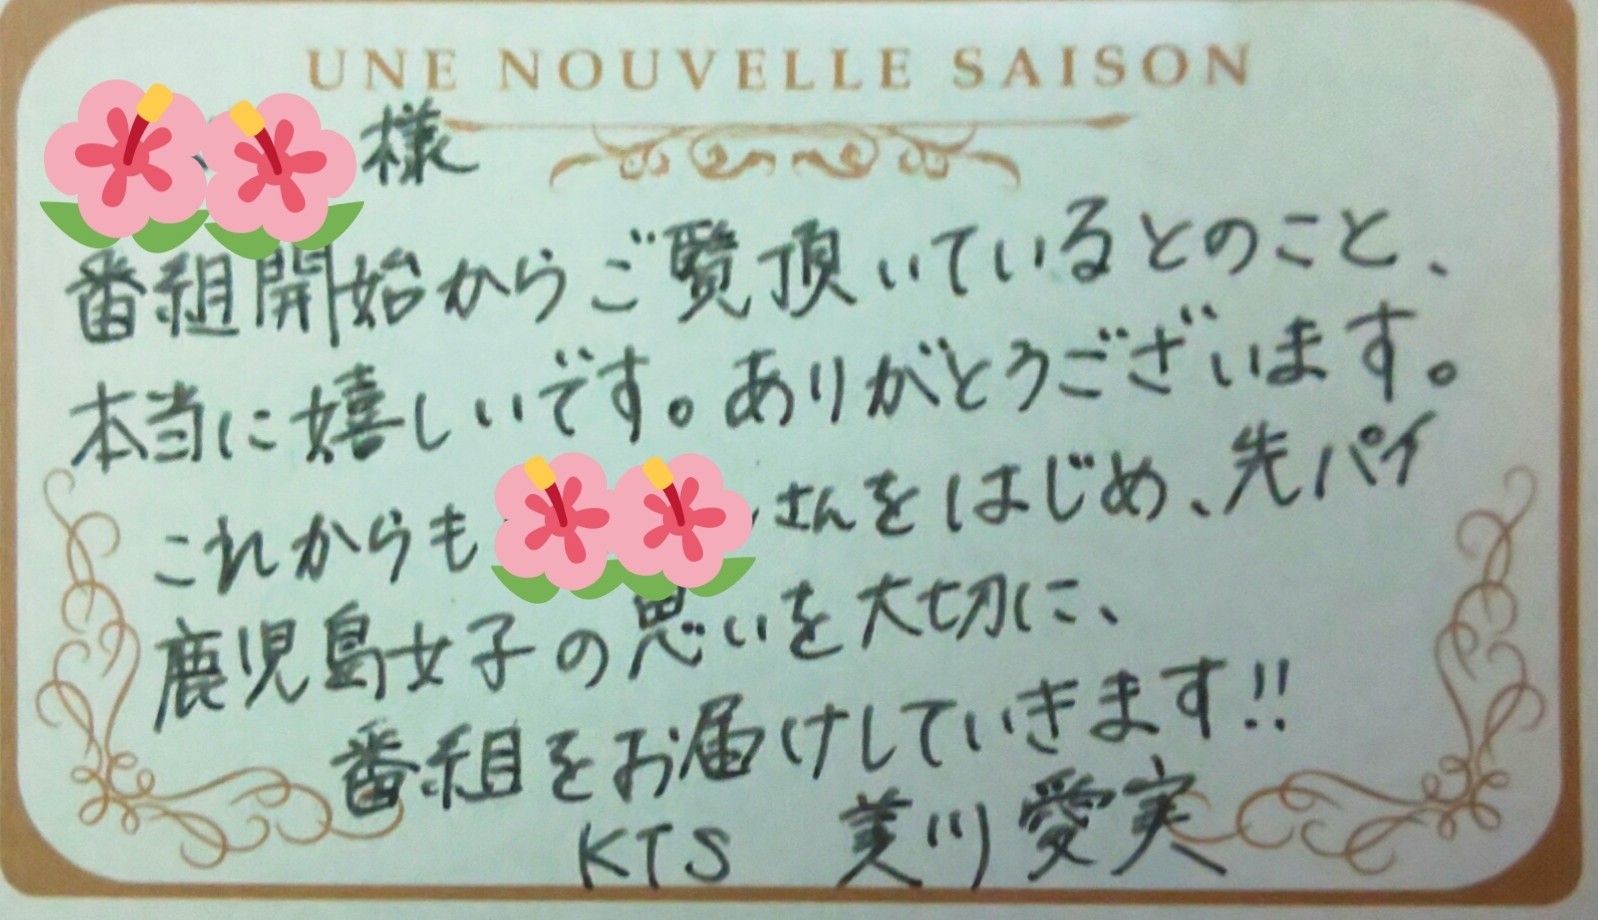 UNE NOUVELLE SAISON
様
番組開始からご覧頂いているとのこと、
本当に嬉しいです。ありがとうございます。
これからも さんをはじめ、先パイ
鹿児島女子の思いを大切に、
番組をお届けしていきます!!
KTS 美川愛実